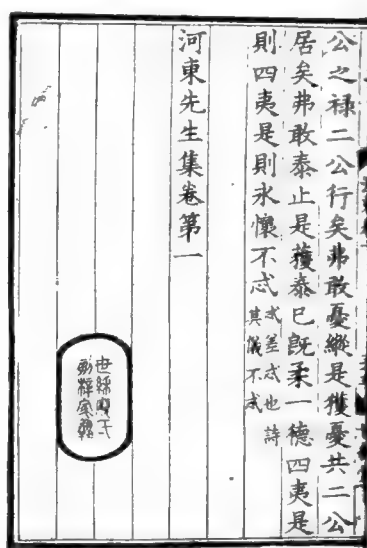 公之祿二公行矣弗敢憂縱是獲憂共二公
居矣弗敢泰止是獲泰已既柔一德四夷是
則四夷是則永懷不忒忒差忒也詩
其儀不忒
河東先生集卷第一
世綵廖氏
刻梓家塾